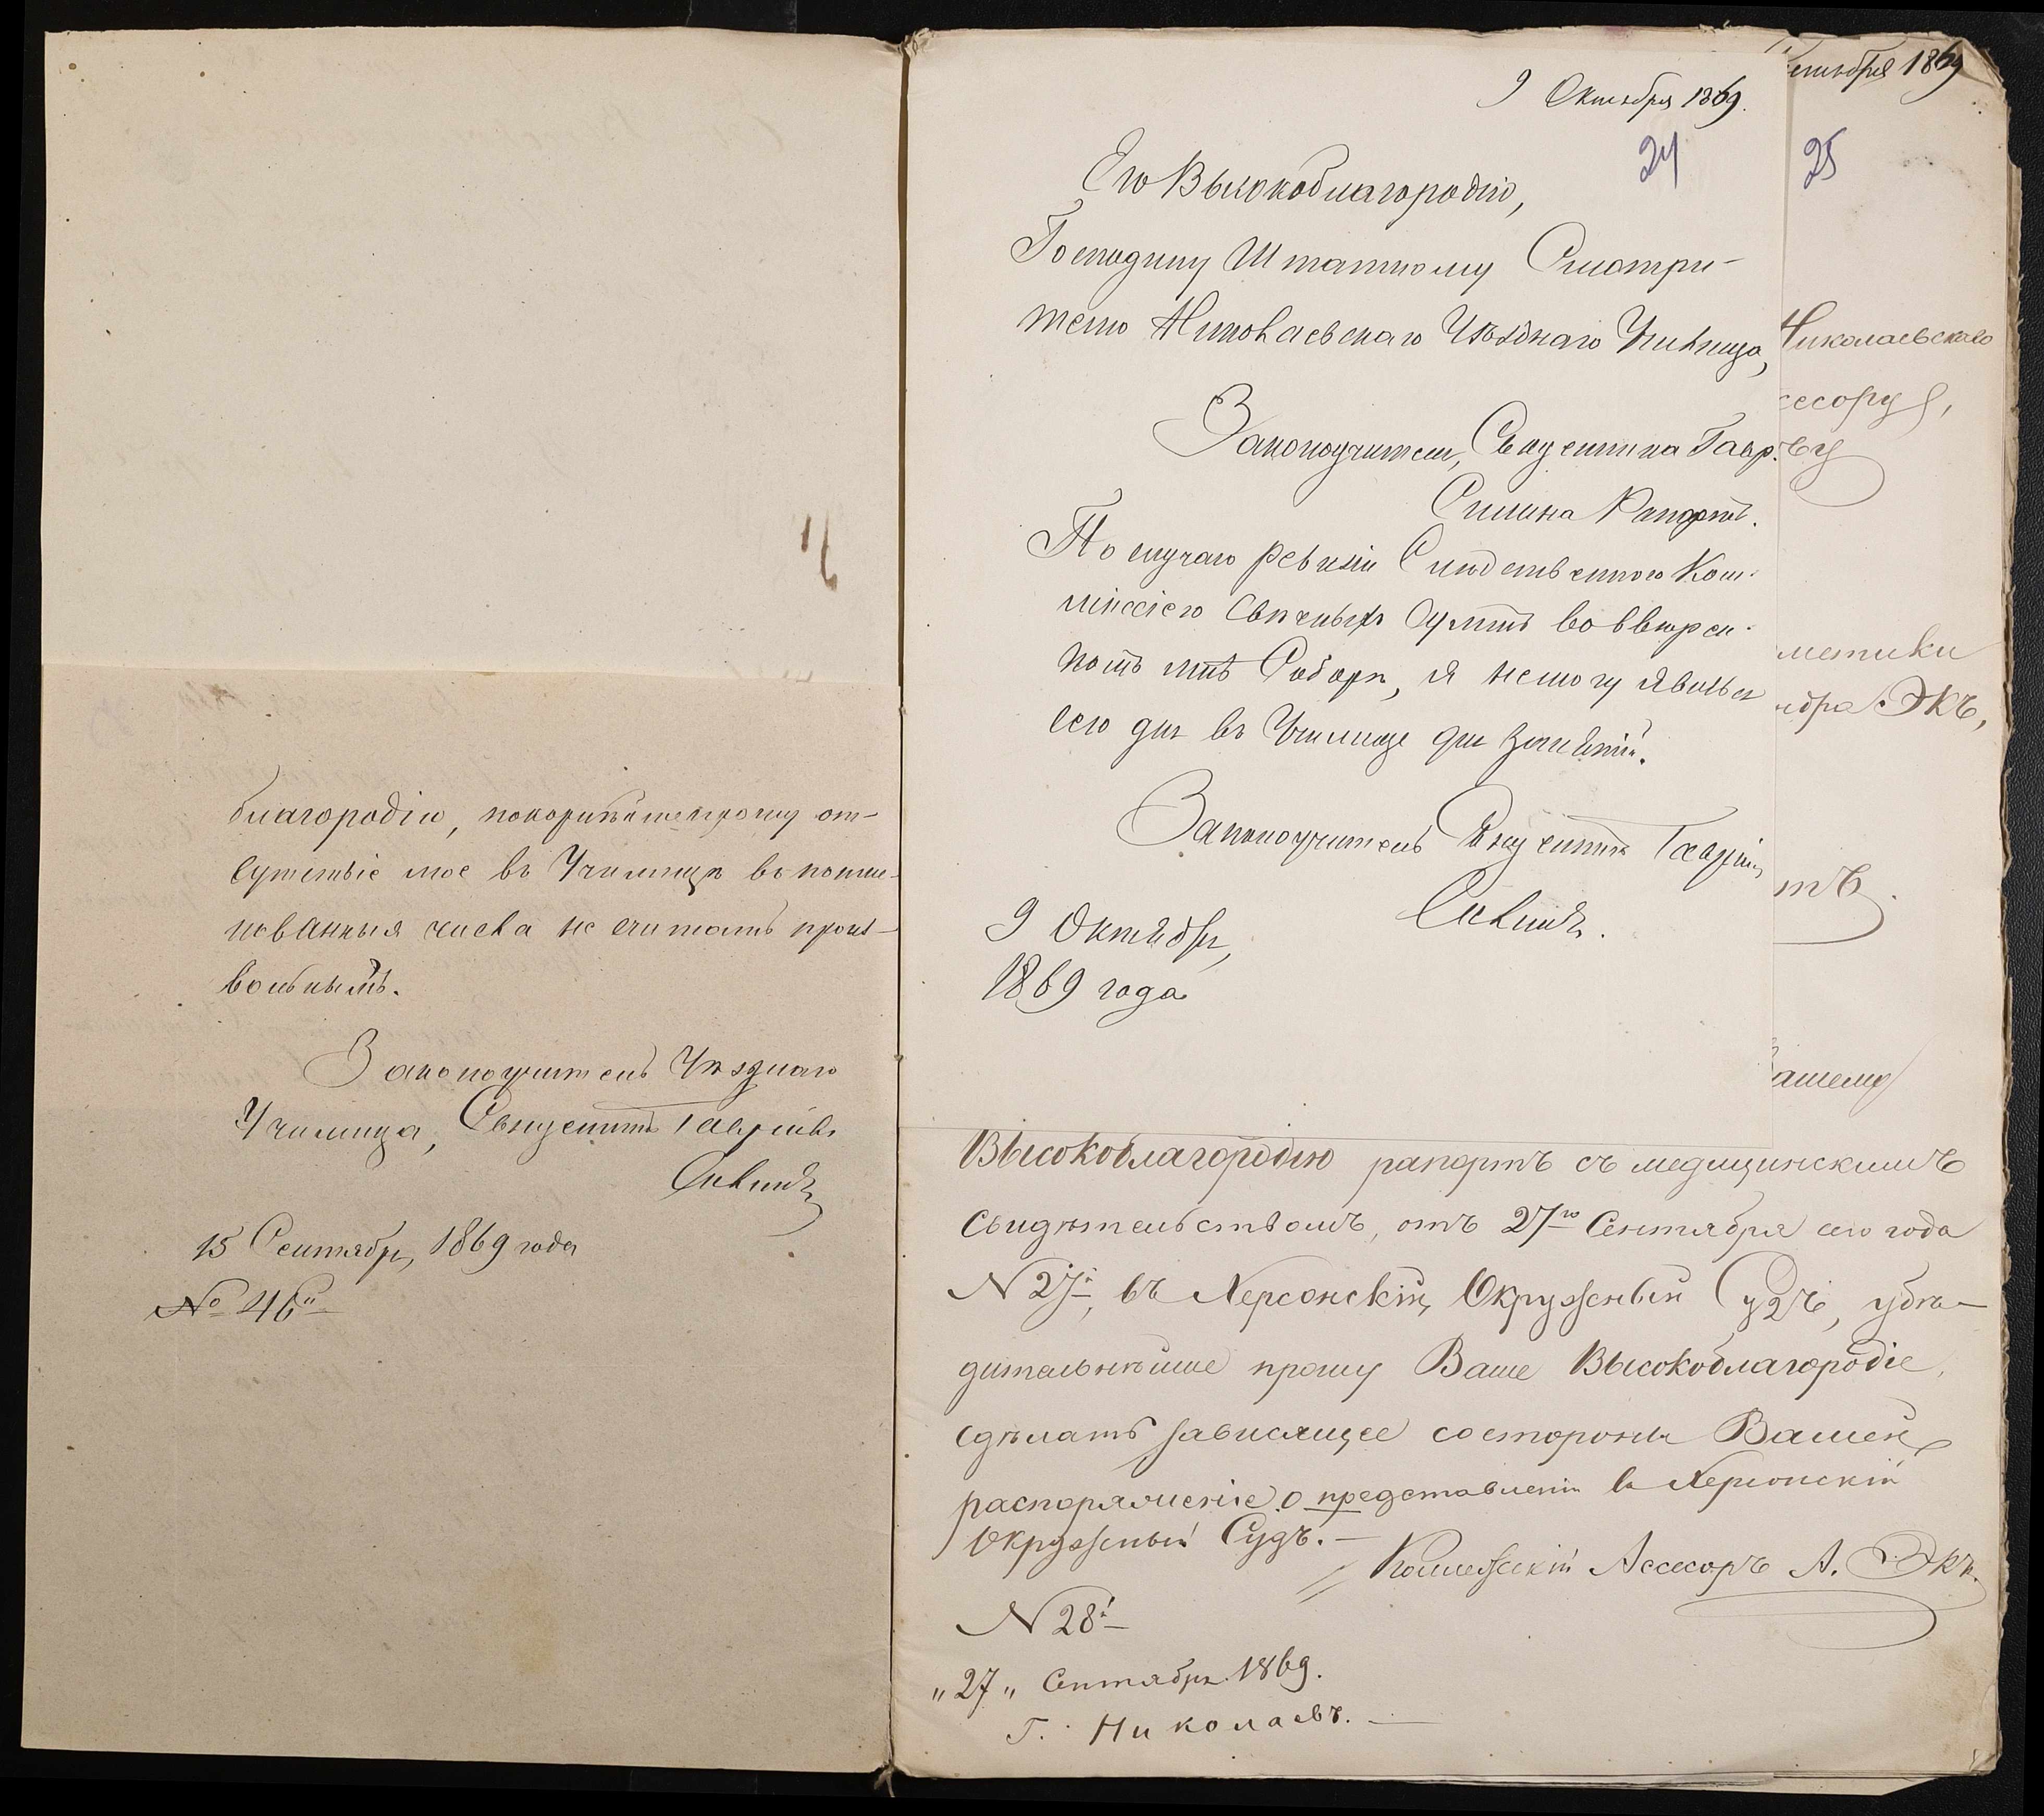 благородію, покорнѣйше прошу от-
сутствіе мое въ Училищѣ въ поиме-
нованныя числа не считать произ-
вольнымъ.
Законоучитель Уѣзднаго
Училища, Священникъ Гавріилъ
15 Сентября, 1869 года
№ 46й
9 Октября 1869.
24
Его Высокоблагородію,
Господину Штатному Смотри-
телю Николаевскаго Уѣзднаго Училища,
Законоучителя, Священника Гавр.
Рапортъ.
По случаю ревизіи Слѣдственною Ком-
миссіею Свѣчныхъ Суммъ во ввѣрен-
номъ мнѣ Соборѣ, я не могу явиться
сего дня въ Училище для занятій.
Законоучитель Священникъ Гавріилъ
9 Октября,
1869 года
ентября 1869
25
Николаевскаго
сесору,
ву
метики
ндра Экъ,
тъ.
ашему
Высокоблагородію рапортъ съ медицинскимъ
свидѣтельствомъ, отъ 27го Сентября сего года
N 27й, въ Херсонскій Окружный Судъ, убѣ-
дительнѣйше прошу Ваше Высокоблагородіе,
сдѣлать зависящее со стороны Вашей
распоряженіе о представленіи въ Херсонскій
Окружный Судъ.—
Коллежскій Ассесоръ А. Экъ.
N 28й
„27„ Сентября 1869.
Г. Николаевъ.—